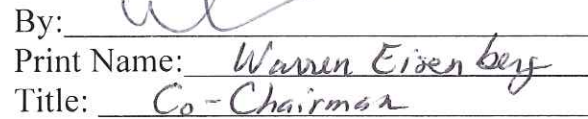 By:
Print Name: Warren Eisenberg
Title: Co-Chairman